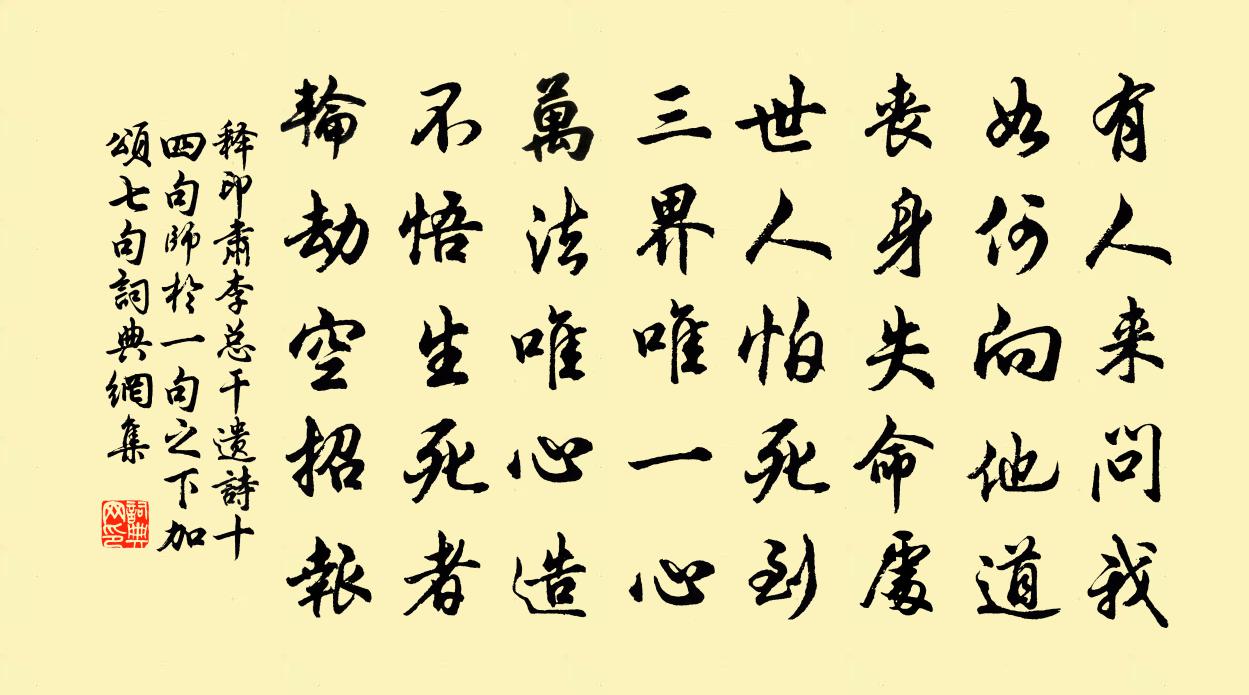 有人来問我
如何向他道
丧身失命處
世人怕死到
三界唯一心
萬法唯心造
不悟生死者
輪劫空招報
释印肃李总干遗詩十
四句師於一句之下加
頌七句詞典網集
詞典网印